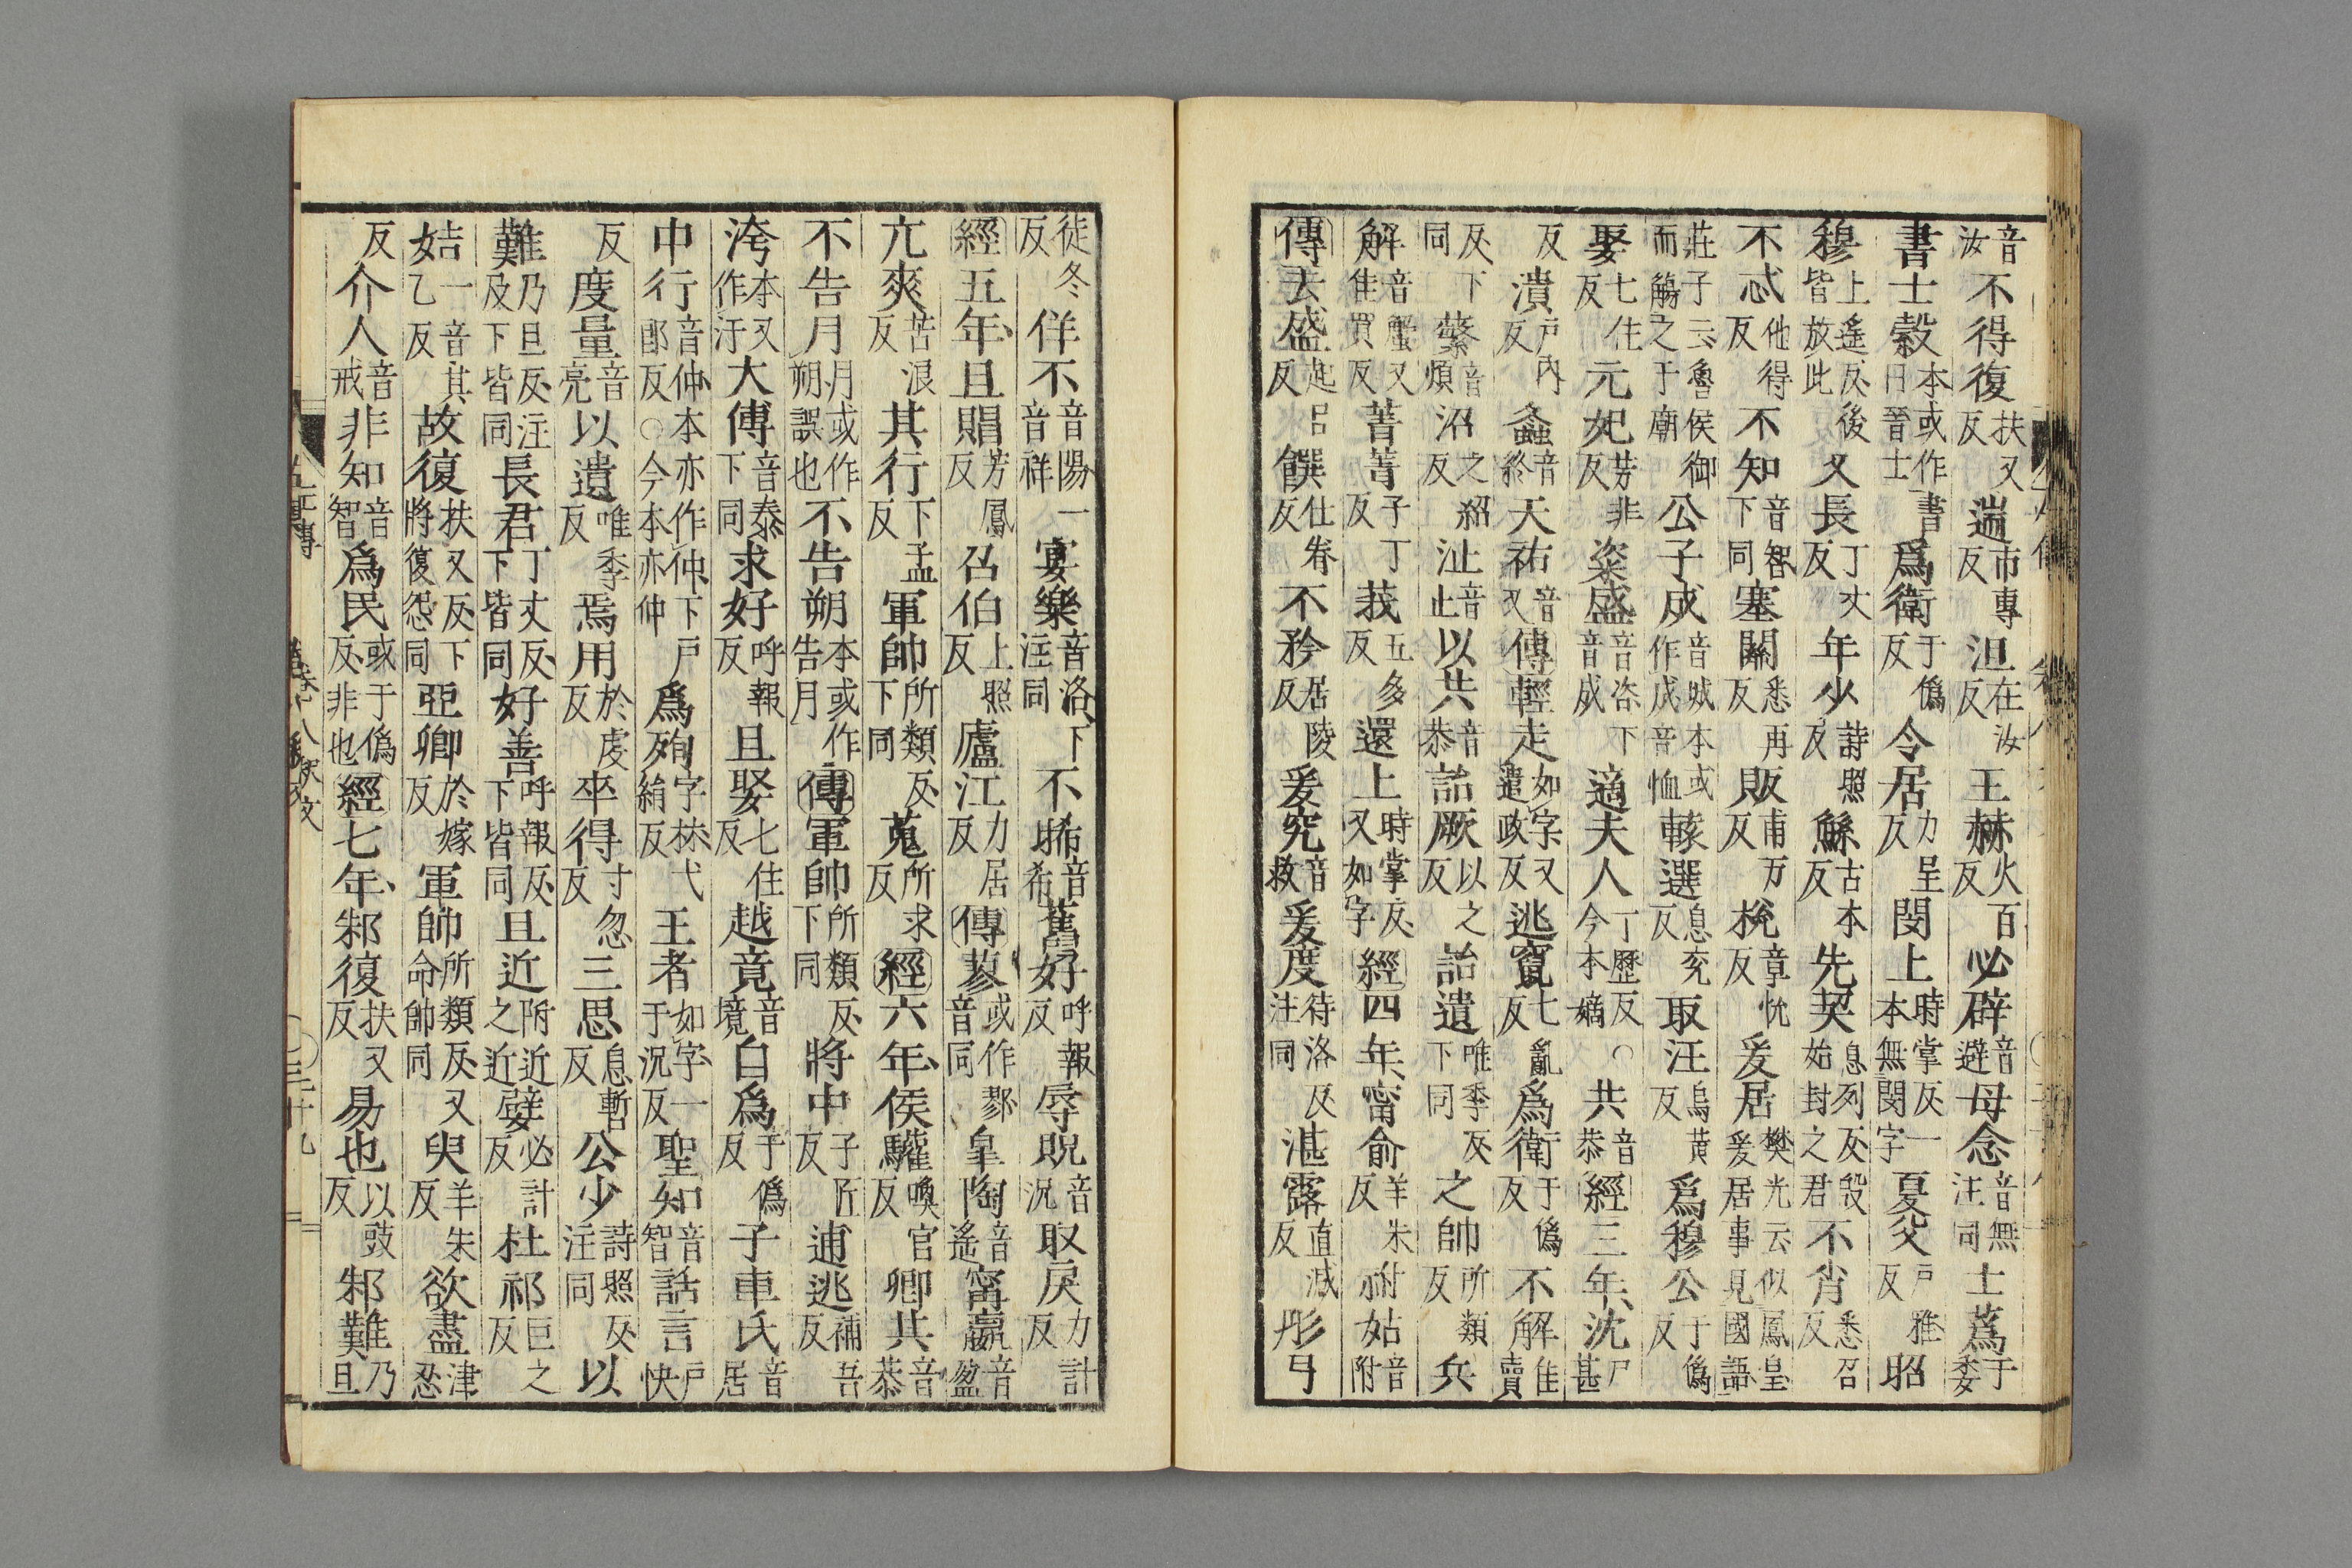 音汝不得復扶又反遄市專反沮在汝反王赫火百反必辟音避母念音無注同士蒍于委
書士縠本或作書曰晉士爲衛于僞反令居力呈反閔上時掌反一本無閔字夏父戶雅反昭
穆上遙反後皆放此又長丁丈反年少詩照反鯀古本反先契息列反殷始封之君不肖悉召反
不忒他得反不知音智下同塞關悉再反販甫万反梲章悅反爰居樊光云似鳳皇爰居事見國語
莊子云魯侯御而觴之于廟公子成音城本或作戍音恤轅選息兖反取汪烏黃反爲穆公于僞反
娶七住反元妃芳非反粢盛音咨下音成適夫人丁歷反今本嫡○共音恭經三年沈尸甚
反潰戶內反螽音終天祐音又傳輕走如字又遣政反逃竄七亂反爲衛于僞反不解佳賣
反下同蘩音煩沼之紹反沚音止以共音恭詒厥以之反詒遺唯季反下同之帥所類反兵
解音蟹又佳買反菁菁子丁反莪五多反還上時掌反又如字經四年甯俞羊朱反祔姑音附
傳去盛起呂反饌仕眷反不矜居陵反爰究音救爰度待洛反注同湛露直減反彤弓
徒冬反佯不音陽一音祥宴樂音洛下注同不睎音希舊好呼報反辱貺音況取戾力計反
經五年且賵芳鳳反召伯上照反廬江力居反傳蓼或作鄝音同皐陶音遙甯嬴音盈
亢爽苦浪反其行下孟反軍帥所類反下同蒐所求反經六年侯驩喚官反卿共音恭
不告月月或作朔誤也不告朔本或作告月傳軍帥所類反下同將中子匠反逋逃補吾反
洿本又作汙大傅音泰下同求好呼報反且娶七住反越竟音境臼爲于僞反子車氏音居
中行音仲本亦作仲下戶郎反○今本亦仲爲殉字林弋絹反王者如字一于況反聖知音智話言戶快
反度量音亮以遺唯季反焉用於虔反卒得寸忽反三思息暫反公少詩照反注同以
難乃旦反注及下皆同長君丁丈反下皆同好善呼報反下皆同且近附近之近嬖必計反杜祁巨之反
姞一音其乙反故復扶又反下將復怨同亞卿於嫁反軍帥所類反又命帥同臾羊朱反欲盡津忍
反介人音戒非知音智爲民或于僞反非也經七年邾復扶又反易也以豉反邾難乃旦